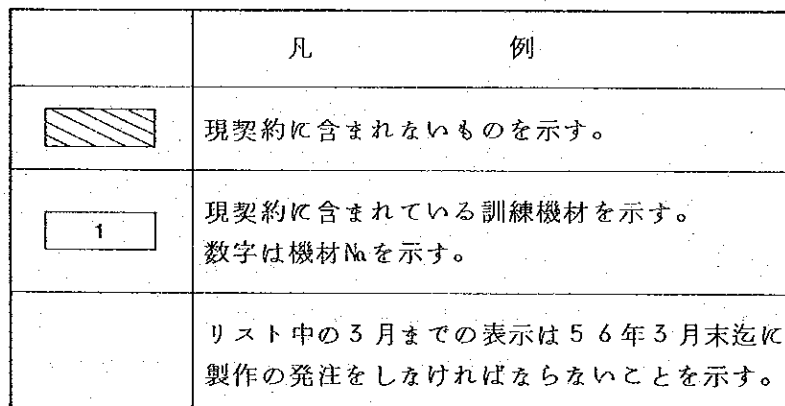 凡 例
現契約に含まれないものを示す。
1
現契約に含まれている訓練機材を示す。
数字は機材№を示す。
リスト中の3月までの表示は56年3月末迄に
製作の発注をしなければならないことを示す。